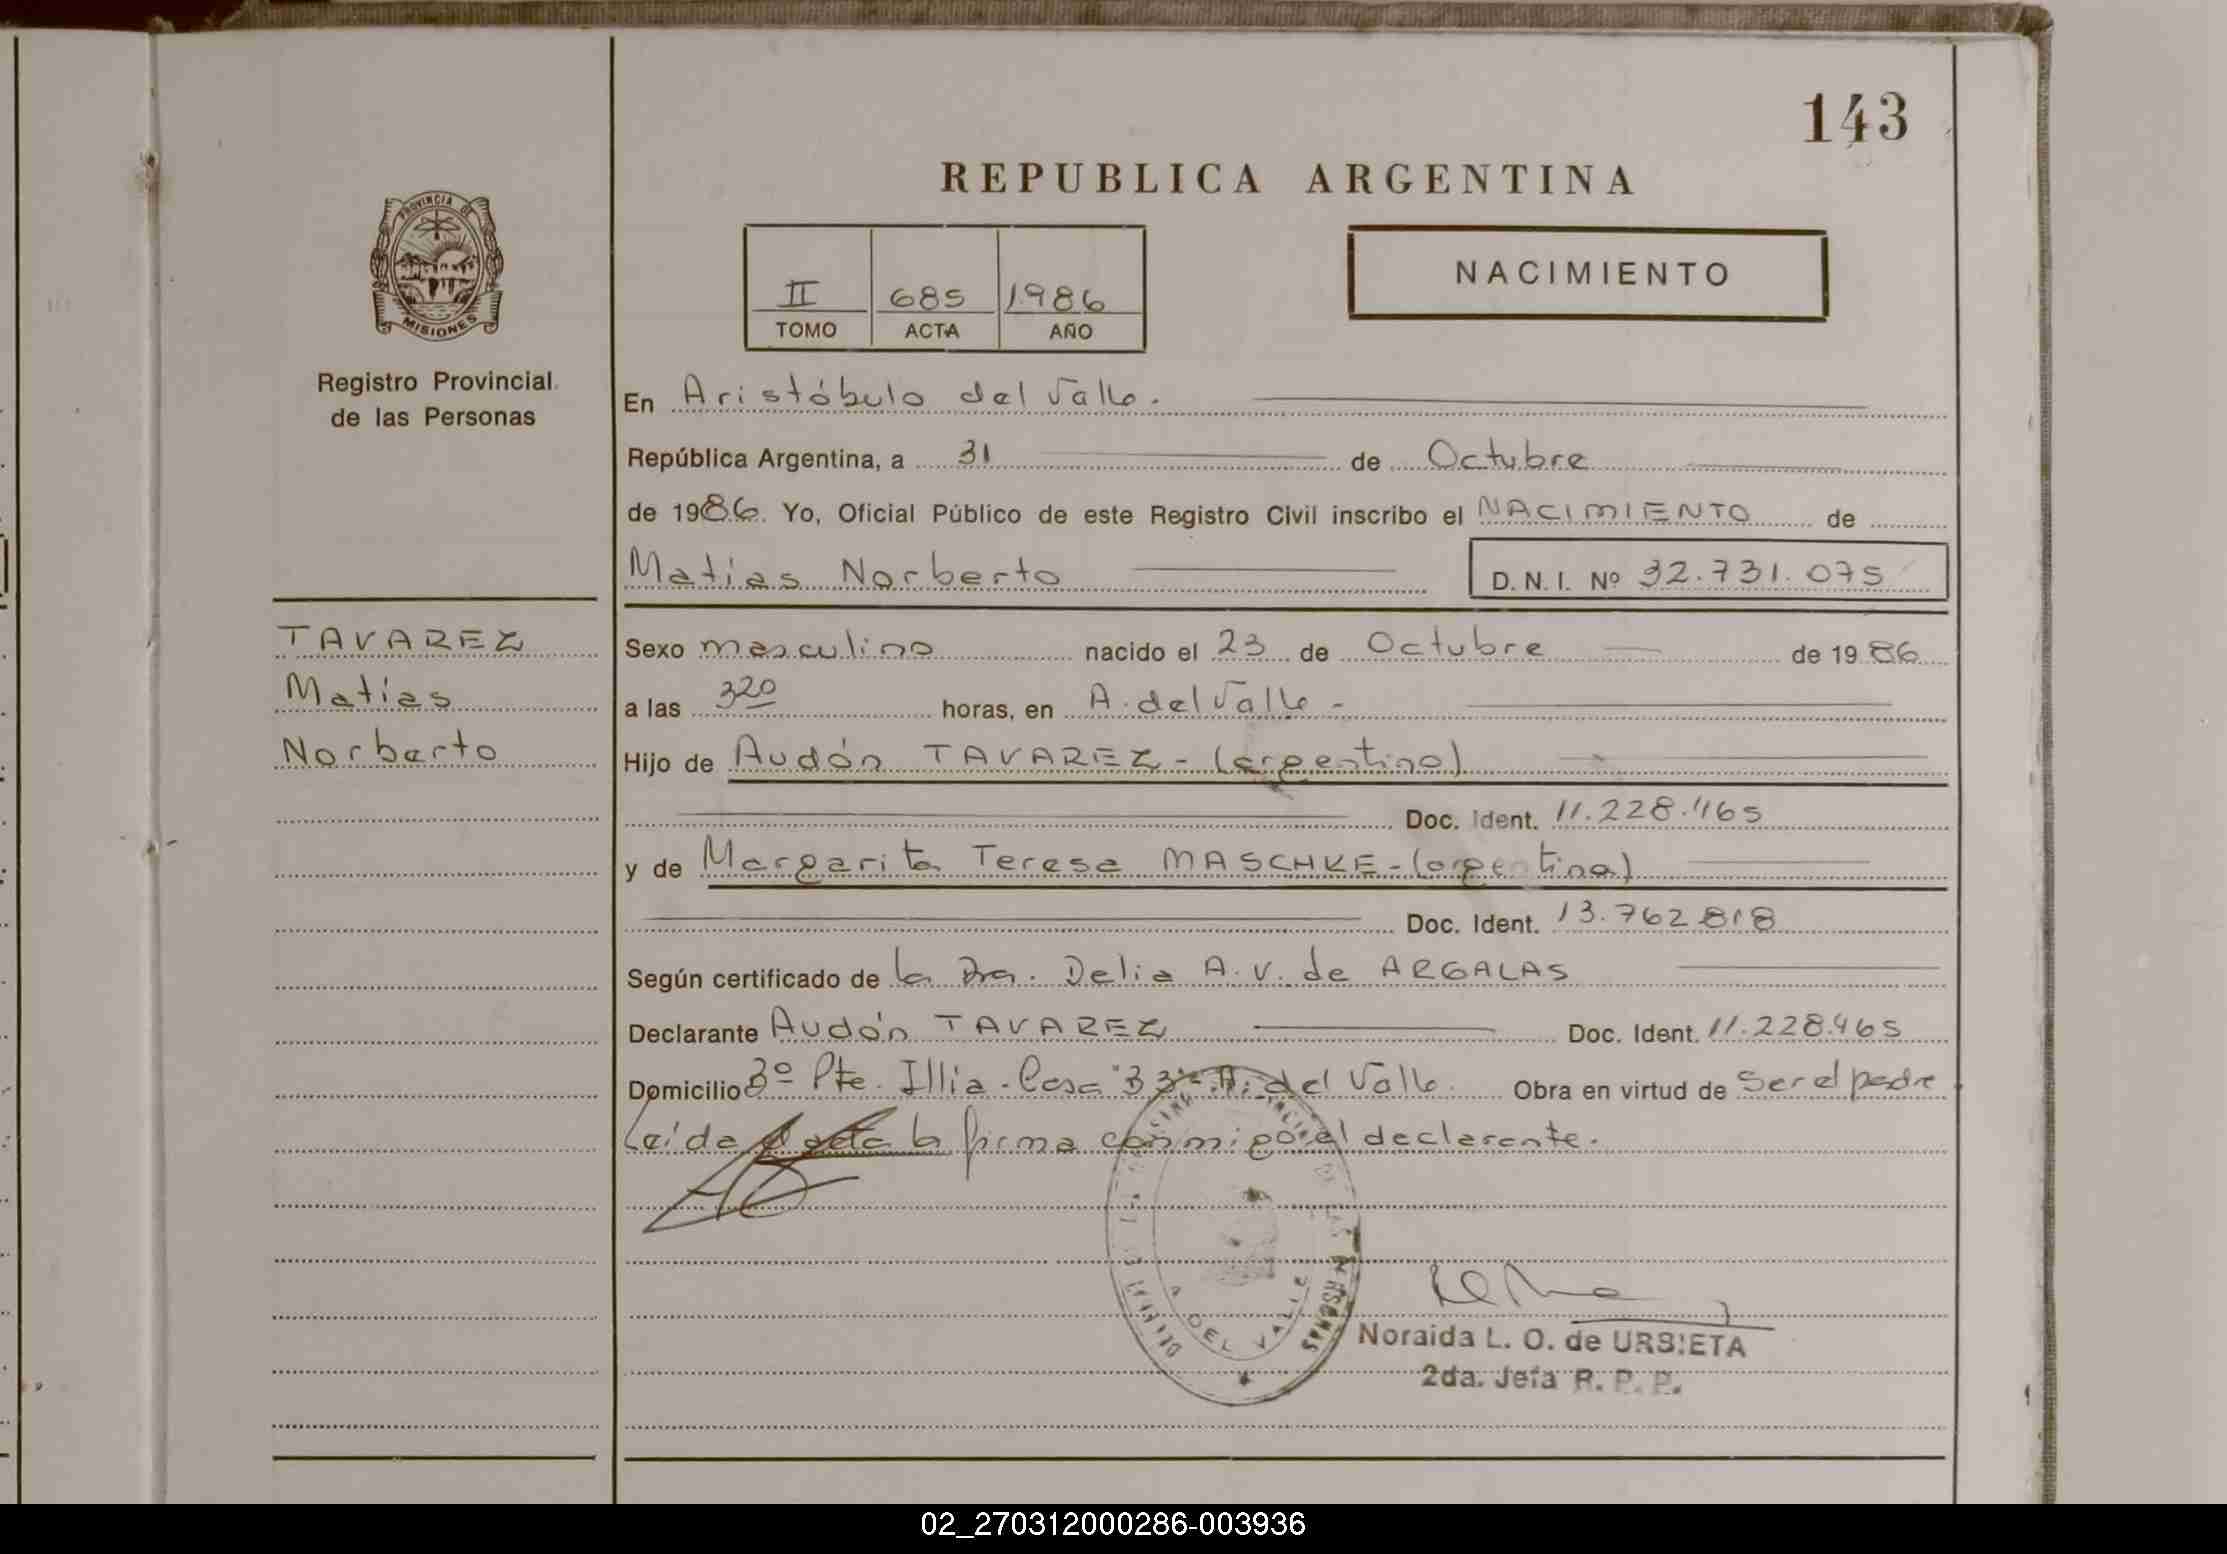 143
REPUBLICA ARGENTINA
PROVINCIA DE
MISIONES
Registro Provincial
de las Personas
II 685 1986
TOMO ACTA AÑO
NACIMIENTO
En Aristóbulo del Valle.
República Argentina, a 31 de Octubre
de 1986. Yo, Oficial Público de este Registro Civil inscribo el NACIMIENTO de
Matías Norberto D. N. I. Nº 32.731.075
TAVAREZ
Matías
Norberto
Sexo masculino nacido el 23 de Octubre de 1986
a las 320 horas, en A. del Valle -
Hijo de Audón TAVAREZ - (argentino)
Doc. Ident. 11.228.465
y de Margarita Teresa MASCHKE - (argentina)
Doc. Ident. 13.762.818
Según certificado de la Dra. Delia A. V. de ARGALAS
Declarante Audón TAVAREZ Doc. Ident. 11.228.465
Domicilio 3º Pte. Illia - Casa "33" - A. del Valle. Obra en virtud de ser el padre
Leída el acta la firma conmigo el declarante.
DEL VALLE
Noraida L. O. de URBIETA
2da. Jefa R. P. P.
02_270312000286-003936